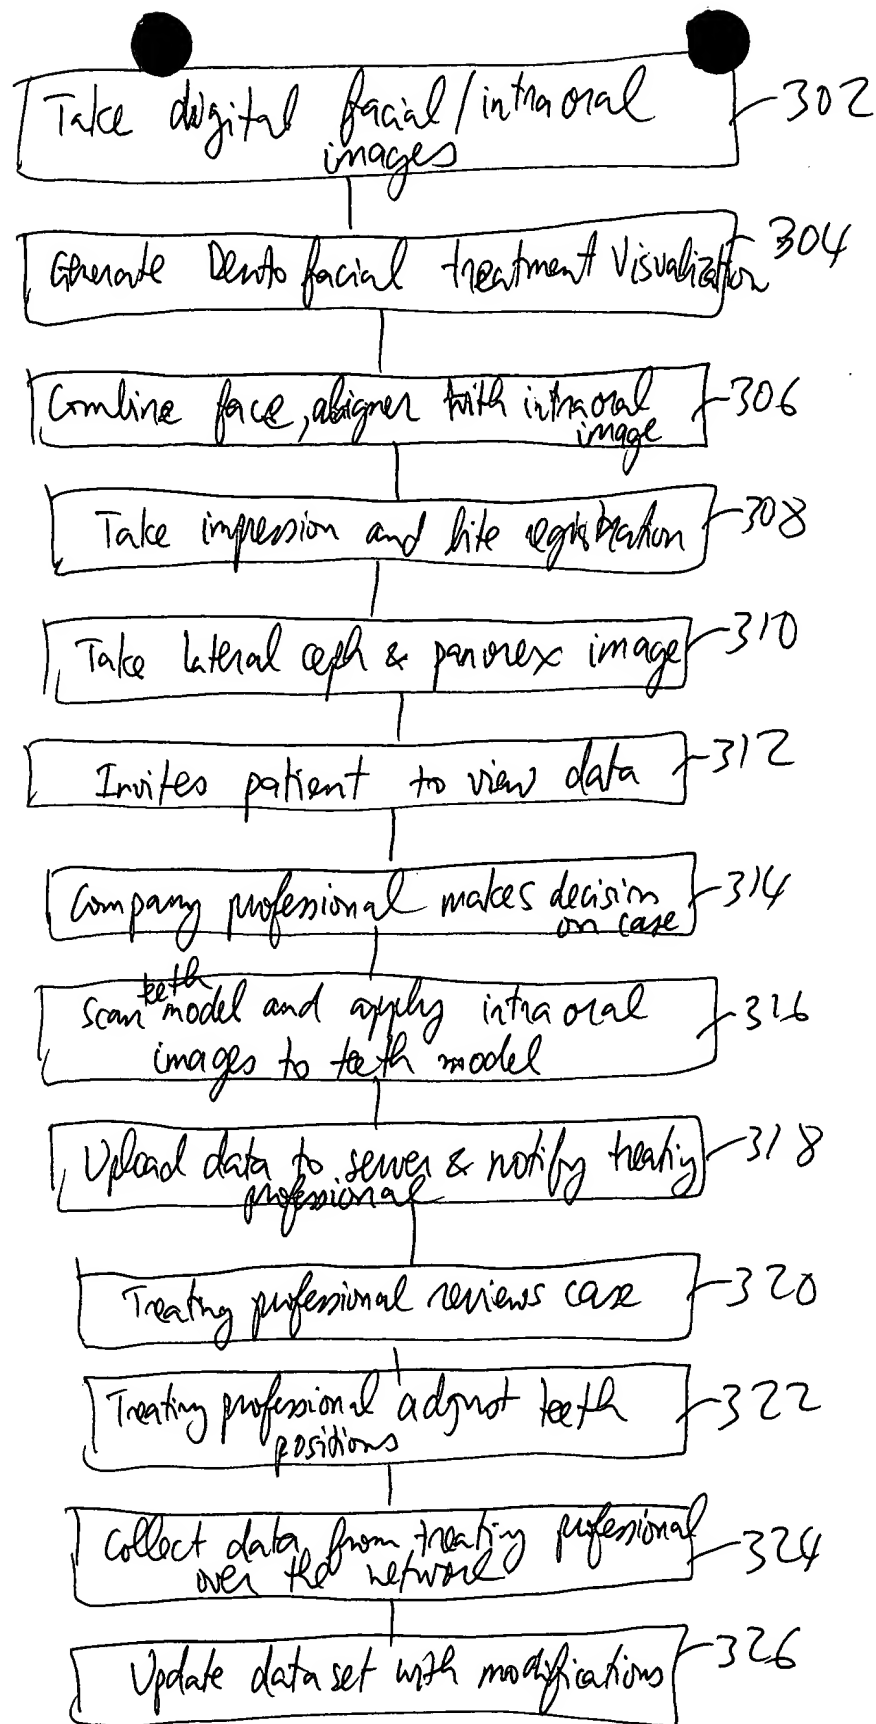 Take digital facial/intraoral 302
images
Generate Dento facial treatment Visualization 304
Combine face, aligner with intraoral 306
image
Take impression and bite registration 308
Take lateral ceph & panorex image 310
Invites patient to view data 312
Company professional makes decision 314
on case
teeth
Scan model and apply intraoral 316
images to teeth model
Upload data to server & notify treating 318
professional
Treating professional reviews case 320
Treating professional adjust teeth 322
positions
Collect data from treating professional 324
over the network
Update data set with modifications 326